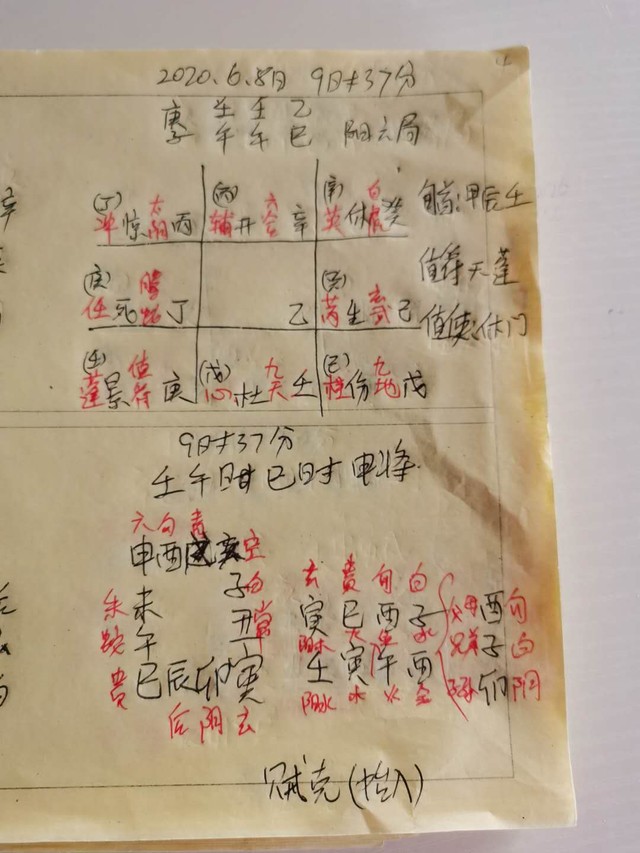 2020.6.8日 9时37分
庚 壬 壬 乙
子 午 午 巳 阳六局
(丁) 冲 惊 太阴 丙
(丙) 辅 开 六合 辛
(辛) 英 休 白虎 癸
旬首:甲辰壬
(庚) 任 死 腾蛇 丁
乙
(癸) 芮 生 玄武 己
值符天蓬
值使:休门
(壬) 蓬 景 值符 庚
(戊) 心 杜 九天 壬
(己) 柱 伤 九地 戊
9时37分
壬午日 巳时 申将
六 勾 青
申 酉 戌 亥 空
朱 未 子 白
蛇 午 丑 常
贵 巳 辰 卯 寅
后 阴 玄
玄 贵 勾 白
寅 巳 酉 子
阳木 火 金 水
壬 寅 午 酉
阳水 木 火 金
父母 酉 勾
兄弟 子 白
子孙 卯 阴
贼克(拾入)